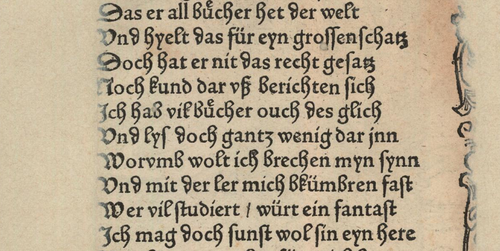 Das er all bücher het der welt
Vnd hyelt das für eyn grossen schatz
Doch hat er nit das recht gesatz
Noch kund dar vß berichten sich
Ich hab vil bücher ouch des glich
Vnd lys doch gantz wenig dar jnn
Worvmb wolt ich brechen myn synn
Vnd mit der ler mich bkümbren fast
Wer vil studiert / würt ein fantast
Ich mag doch sunst wol sin eyn here